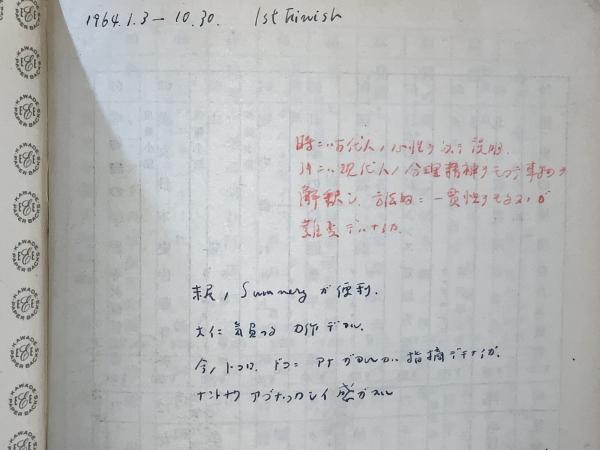 1964.1.3 — 10.30. 1st Finish
時ニハ古代人ノ心性ヲ以テ説明.
時ニハ現代人ノ合理精神ヲモッテ事物ヲ
解釈シ、方法的ニ一貫性ヲモタヌノガ
難点デハナイカ.
末尾ノ Summeryガ便利.
大イニ気負ッタ力作デアル.
今ノトコロ、ドコニアナガアルカハ指摘デキナイガ.
ナントナクアブナッカシイ感ガスル
KAWADE PAPER BACKS